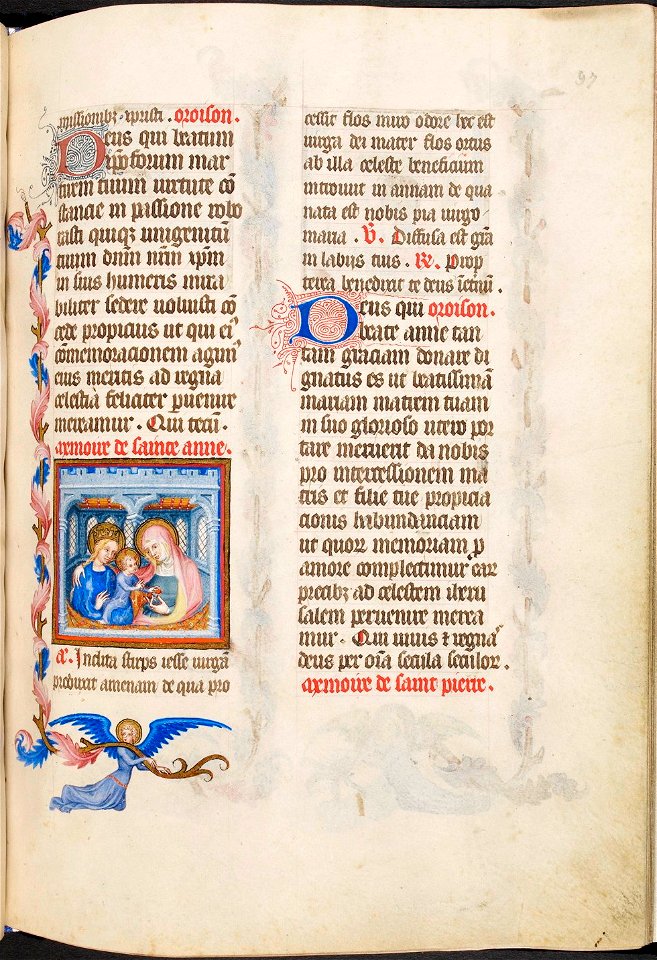 97
missionibꝫ · xpristi . oroison.
Deus qui beatum
xp̄oforum mar
tirem tuum uirtute cō
stancie in passione robo
rasti quiqꝫ unigenitū
tuum dn̄m nr̄m ipm̄
in suis humeris mira
biliter sedere uoluisti cō
cede propicius ut qui ei9
cōmemoracionem agim9
eius meritis ad regna
celestia feliciter p̱uenire
mereamur . Qui tecū .
memoire de sainte anne .
a͞. Inclita stirps iesse uirgā
produxit amenam de qua pro
cessit flos miro odore hec est
uirga dei mater flos ortus
ab illa celeste beneficium
introiuit in annam de qua
nata est nobis pia uirgo
maria . V̄. Diffusa est grā
in labiis tuis . R̄. Prop
terea benedixit te deus ī etnū .
Deus qui oroison .
beate anne tan
tam graciam donare di
gnatus es ut beatissimā
mariam matrem tuam
in suo glorioso utero por
tare meruerit da nobis
pro intercessionem ma
tris et filie tue propicia
cionis habundanciam
ut quorꝫ memoriam p̱
amore complectimur ear
precibꝫ ad celestem iheru
salem peruenire merea
mur . Qui uiuis ⁊ regna
deus per oīa secula seculor .
memoire de saint pierre .